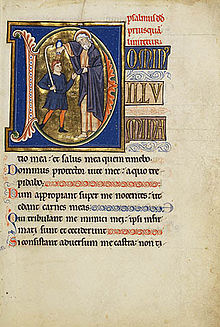 psalmus dd
priusquā
liniretur
D
OMIN
ILLV
MINA
tio mea · et salus mea quem timebo
Dominus protector uite mee · a quo tre
pidabo ·
Dum appropiant super me nocentes · ut
edant carnes meas ·
Qui tribulant me inimici mei · ipsi infir
mati sunt et ceciderunt
Si consistant aduersum me castra · non ti